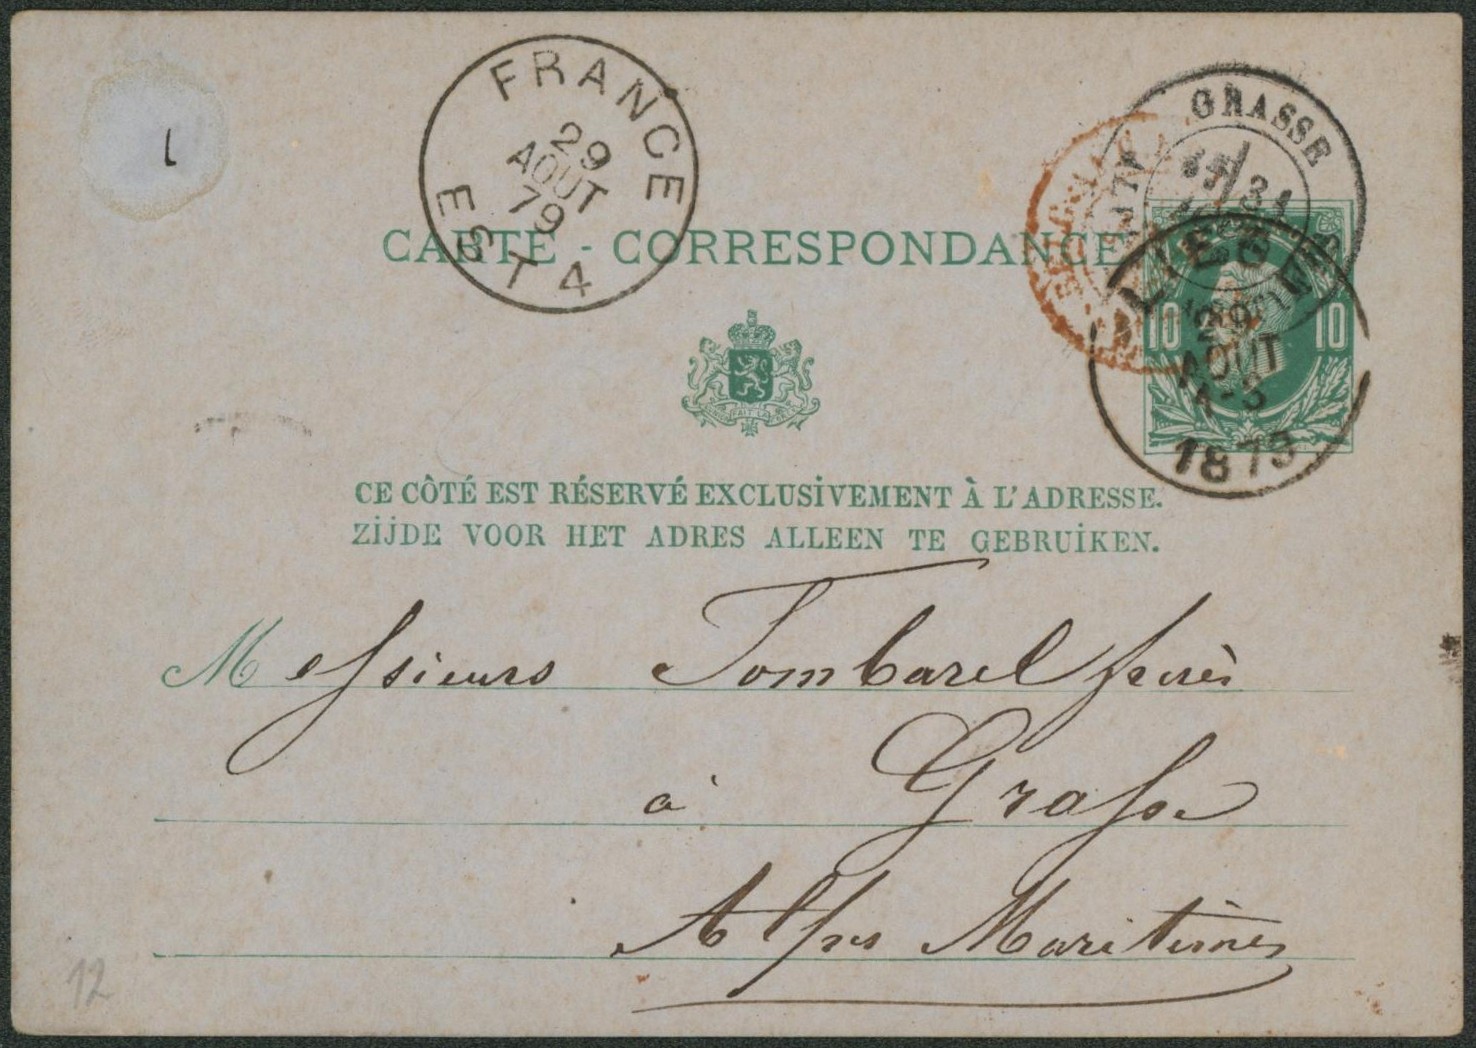 FRANCE
29
AOUT
79
EST 4
GRASSE
31
CARTE - CORRESPONDANCE
LIEGE
29
AOUT
4-5
1879
10 10
CE CÔTÉ EST RÉSERVÉ EXCLUSIVEMENT À L'ADRESSE.
ZIJDE VOOR HET ADRES ALLEEN TE GEBRUIKEN.
Messieurs Tombarel frères
à Grasse
Alpes Maritimes
12